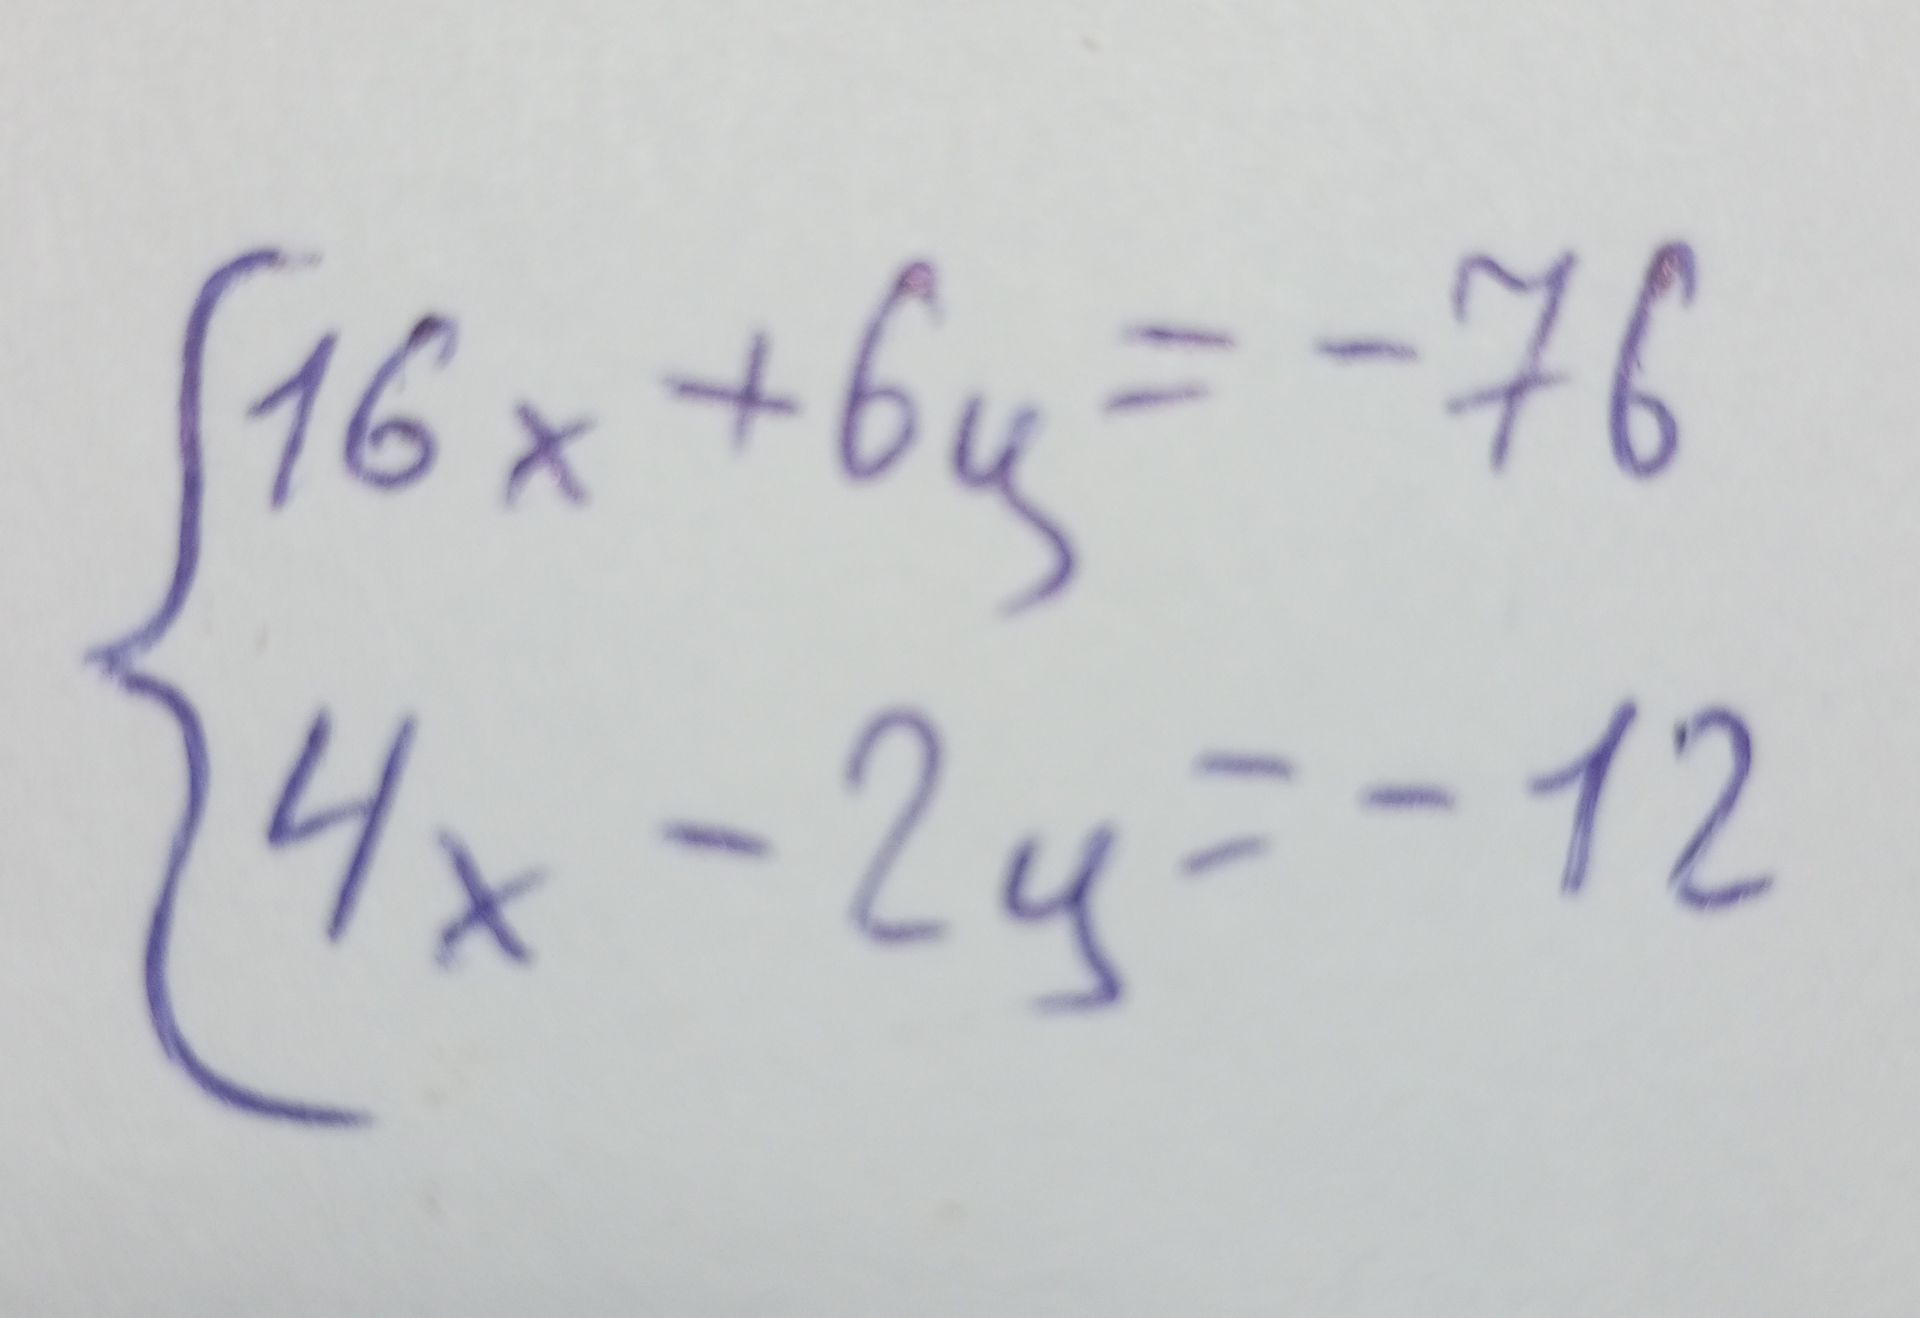 16x + 6y = - 76
4x - 2y = - 12